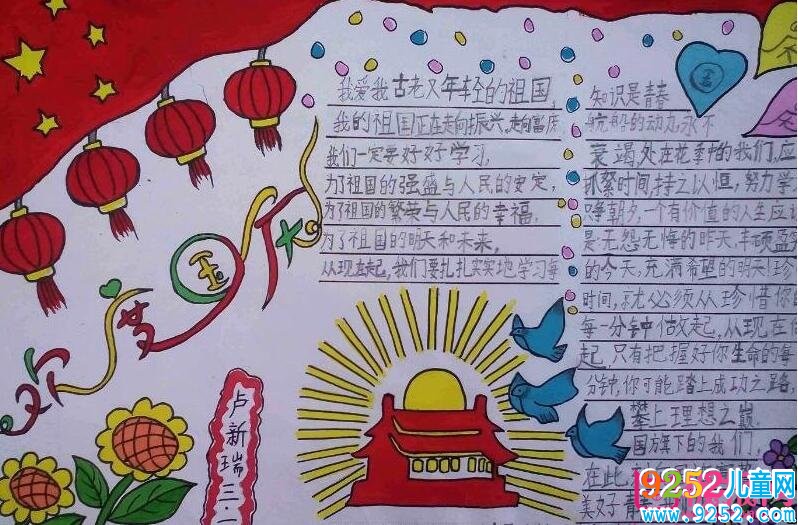 欢度国庆
我爱我古老又年轻的祖国,
我的祖国正在走向振兴,走向富庶
我们一定要好好学习,
为了祖国的强盛与人民的安定,
为了祖国的繁荣与人民的幸福,
为了祖国的明天和未来,
从现在起,我们要扎扎实实地学习每
知识是青春
航船的动力,永不
衰竭,处在花季中的我们,应
抓紧时间,持之以恒,努力学
争朝夕,一个有价值的人生应
是无怨无悔的昨天,丰硕盈
的今天,充满希望的明天!珍
时间,就必须从珍惜你
每一分钟做起,从现在
起,只有把握好你生命的每
分钟,你可能踏上成功之路,
攀上理想之巅.
国旗下的我们
在此
美好青春
卢新瑞三.
9252儿童网
www.9252.com